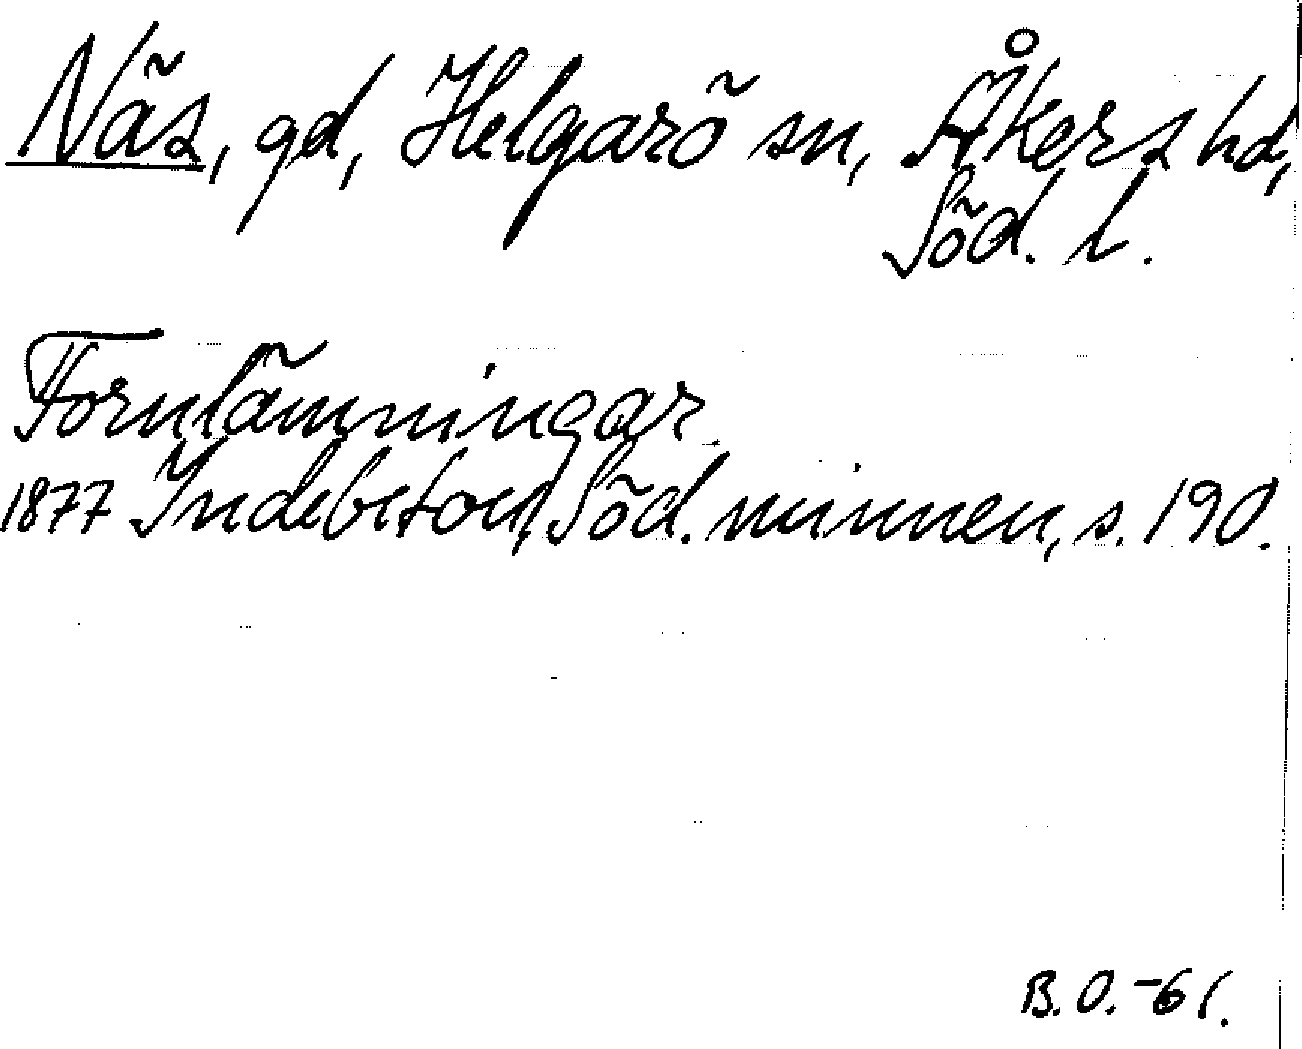 Näs, gd, Helgarö sn, Åkers hd,
Söd. l.
Fornlämningar.
1877 Indebetou, Söd. minnen, s. 190.
B. O. -61.